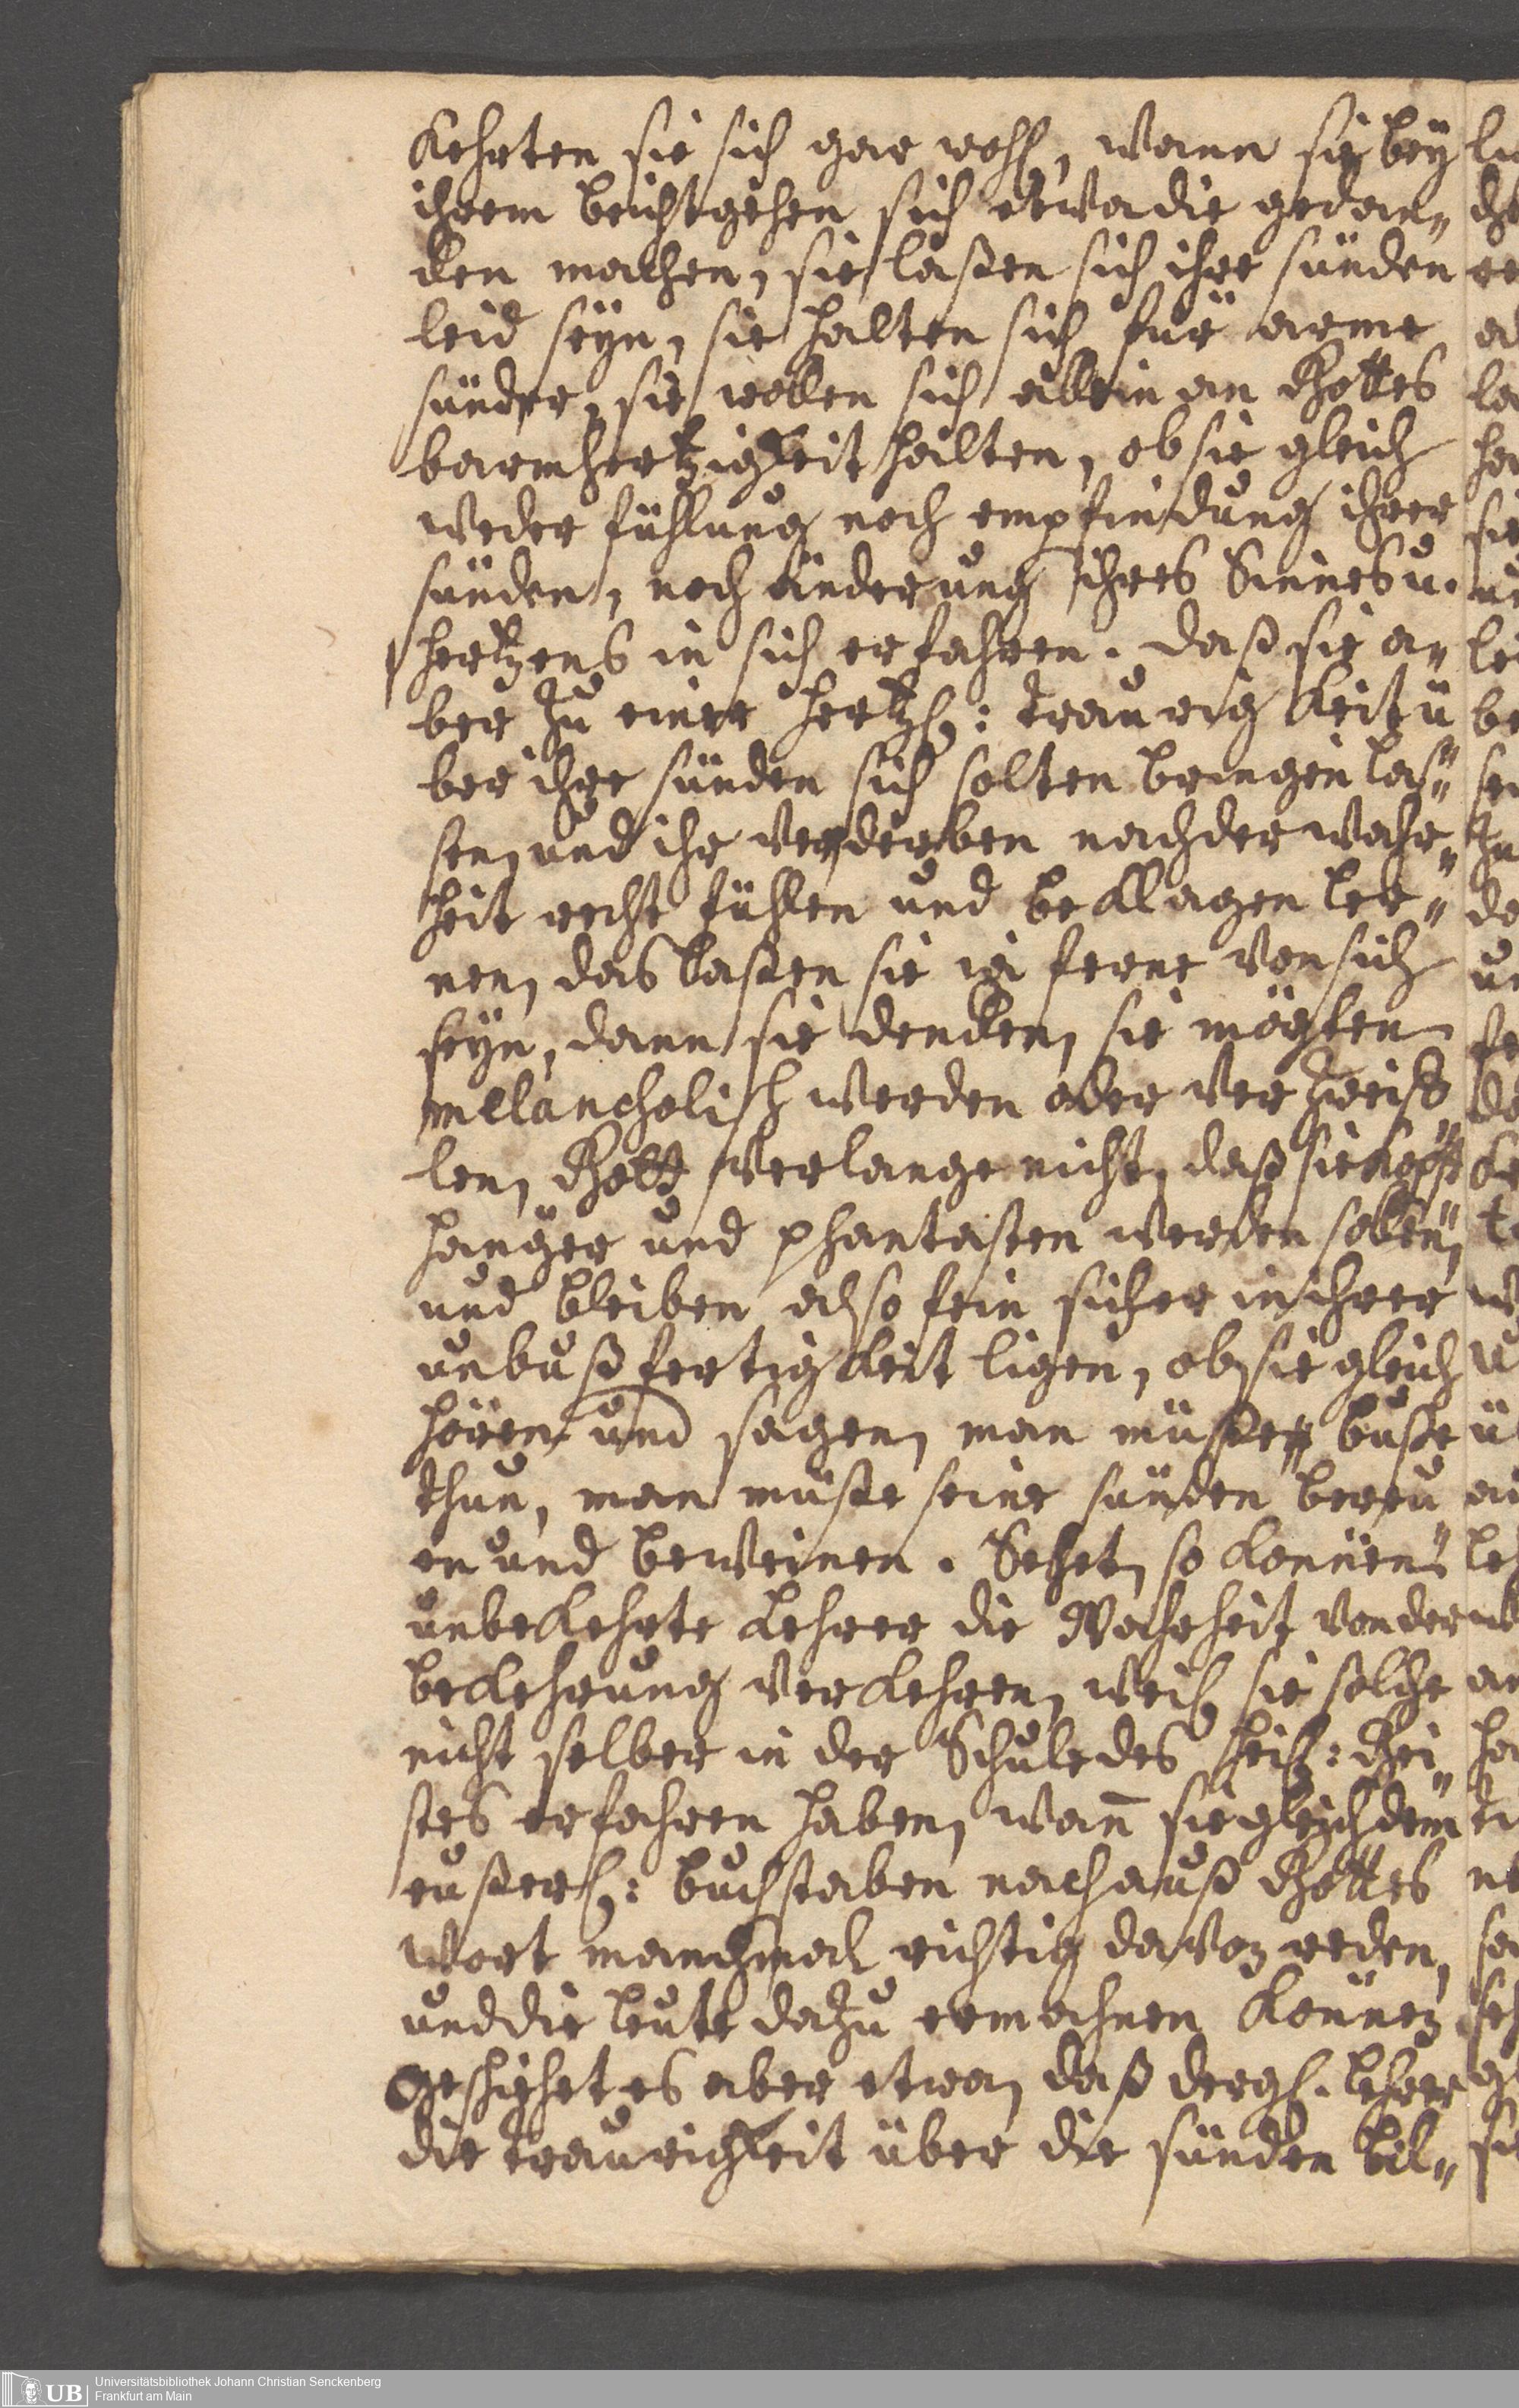 Kehrten sie sich gar wohl, wann sie bey
ihrem beichtgehen sich etwa die gedan„
cken machen, sie laßen sich ihre sünden
leid seyn, sie halten sich für arme
sünder, sie wollen sich allein an Gottes
barmhertzigkeit halten, ob sie gleich
weder fühlung noch empfindung ihrer
sünden, noch änderung ihres Sinnes u.
hertzens in sich erfahren. daß sie a„
ber zu einer hertzl: traurigkeit ü
ber ihre sünden sich solten bringen las„
sen, und ihr verderben nach der wahr„
heit recht fühlen und beklagen ler„
nen, das laßen sie ja ferne von sich
seyn, dann sie dencken, sie mögten
melancholisch werden oder verzweif„
len, Gott verlange nicht, daß sie kopf„
hänger und phantasten werden sollen,
und bleiben also fein sicher in ihrer
unbußfertigkeit ligen, ob sie gleich
hören und sagen, man müste buße
thun, man müste seine sünden bereu„
en und beweinen. Sehet, so können
unbekehrte Lehrer die Wahrheit von der
bekehrung verkehren, weil sie solche
nicht selber in der Schule des heil: Gei„
stes erfahren haben, wañ sie gleich dem
eußerl: buchstaben nach auß Gottes
Wort manchmal richtig davon reden,
und die leute dazu ermahnen können.
Geschiehet es aber etwa, daß dergl. lehrer
die traurigkeit über die sünden bil„
UB Universitätsbibliothek Johann Christian Senckenberg
Frankfurt am Main